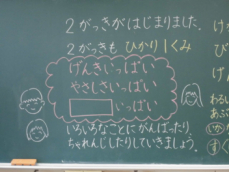 2がっきがはじまりました。
2がっきも ひかり1くみ
げんきいっぱい
やさしさいっぱい
いっぱい
いろいろなことにがんばったり、
ちゃれんじしたりしていきましょう。